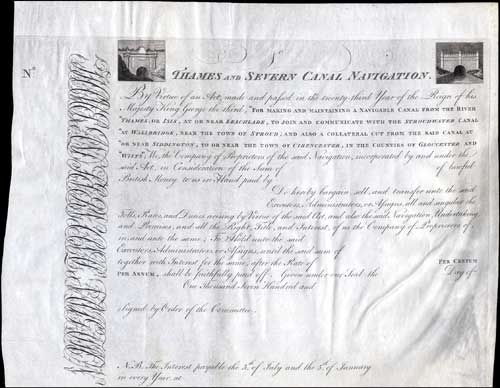 Nº
THAMES AND SEVERN CANAL NAVIGATION.
By Virtue of an Act, made and passed in the twenty-third Year of the Reign of his
Majesty King George the third, "FOR MAKING AND MAINTAINING A NAVIGABLE CANAL FROM THE RIVER
"THAMES, OR ISIS, AT OR NEAR LECHLADE, TO JOIN AND COMMUNICATE WITH THE STROUDWATER CANAL
"AT WALBRIDGE, NEAR THE TOWN OF STROUD; AND ALSO A COLLATERAL CUT FROM THE SAID CANAL AT
"OR NEAR SIDDINGTON, TO OR NEAR THE TOWN OF CIRENCESTER, IN THE COUNTIES OF GLOCESTER AND
"WILTS", We, the Company of Proprietors of the said Navigation, incorporated by and under the
said Act, in Consideration of the Sum of of lawful
British Money to us in Hand paid by
Do hereby bargain, sell, and transfer unto the said
Executors, Administrators, or Assigns, all and singular the
Tolls, Rates, and Duties arising by Virtue of the said Act, and also the said Navigation, Undertaking,
and Premises, and all the Right, Title, and Interest, of us the Company of Proprietors of,
in, and unto the same; To Hold unto the said
Executors, Administrators or Assigns, until the said sum of
together with Interest for the same, after the Rate of PER CENTUM
PER ANNUM, shall be faithfully paid off. Given under our Seal the Day of
One Thousand Seven Hundred and
Signed by Order of the Committee.
N.B. The Interest payable the 5th of July and the 5th of January
in every Year, at